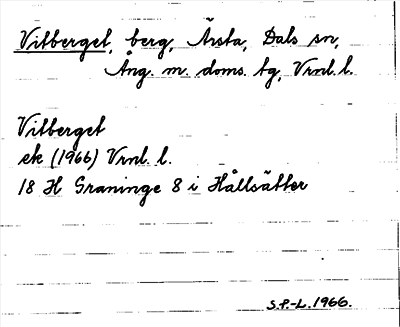 Vitberget, berg, Ärsta, Dals sn,
Ång. m. doms. tg, Vrnl. l.
Vitberget
ek (1966) Vrnl. l.
18 H Graninge 8 i Hållsätter
S.P.-L. 1966.